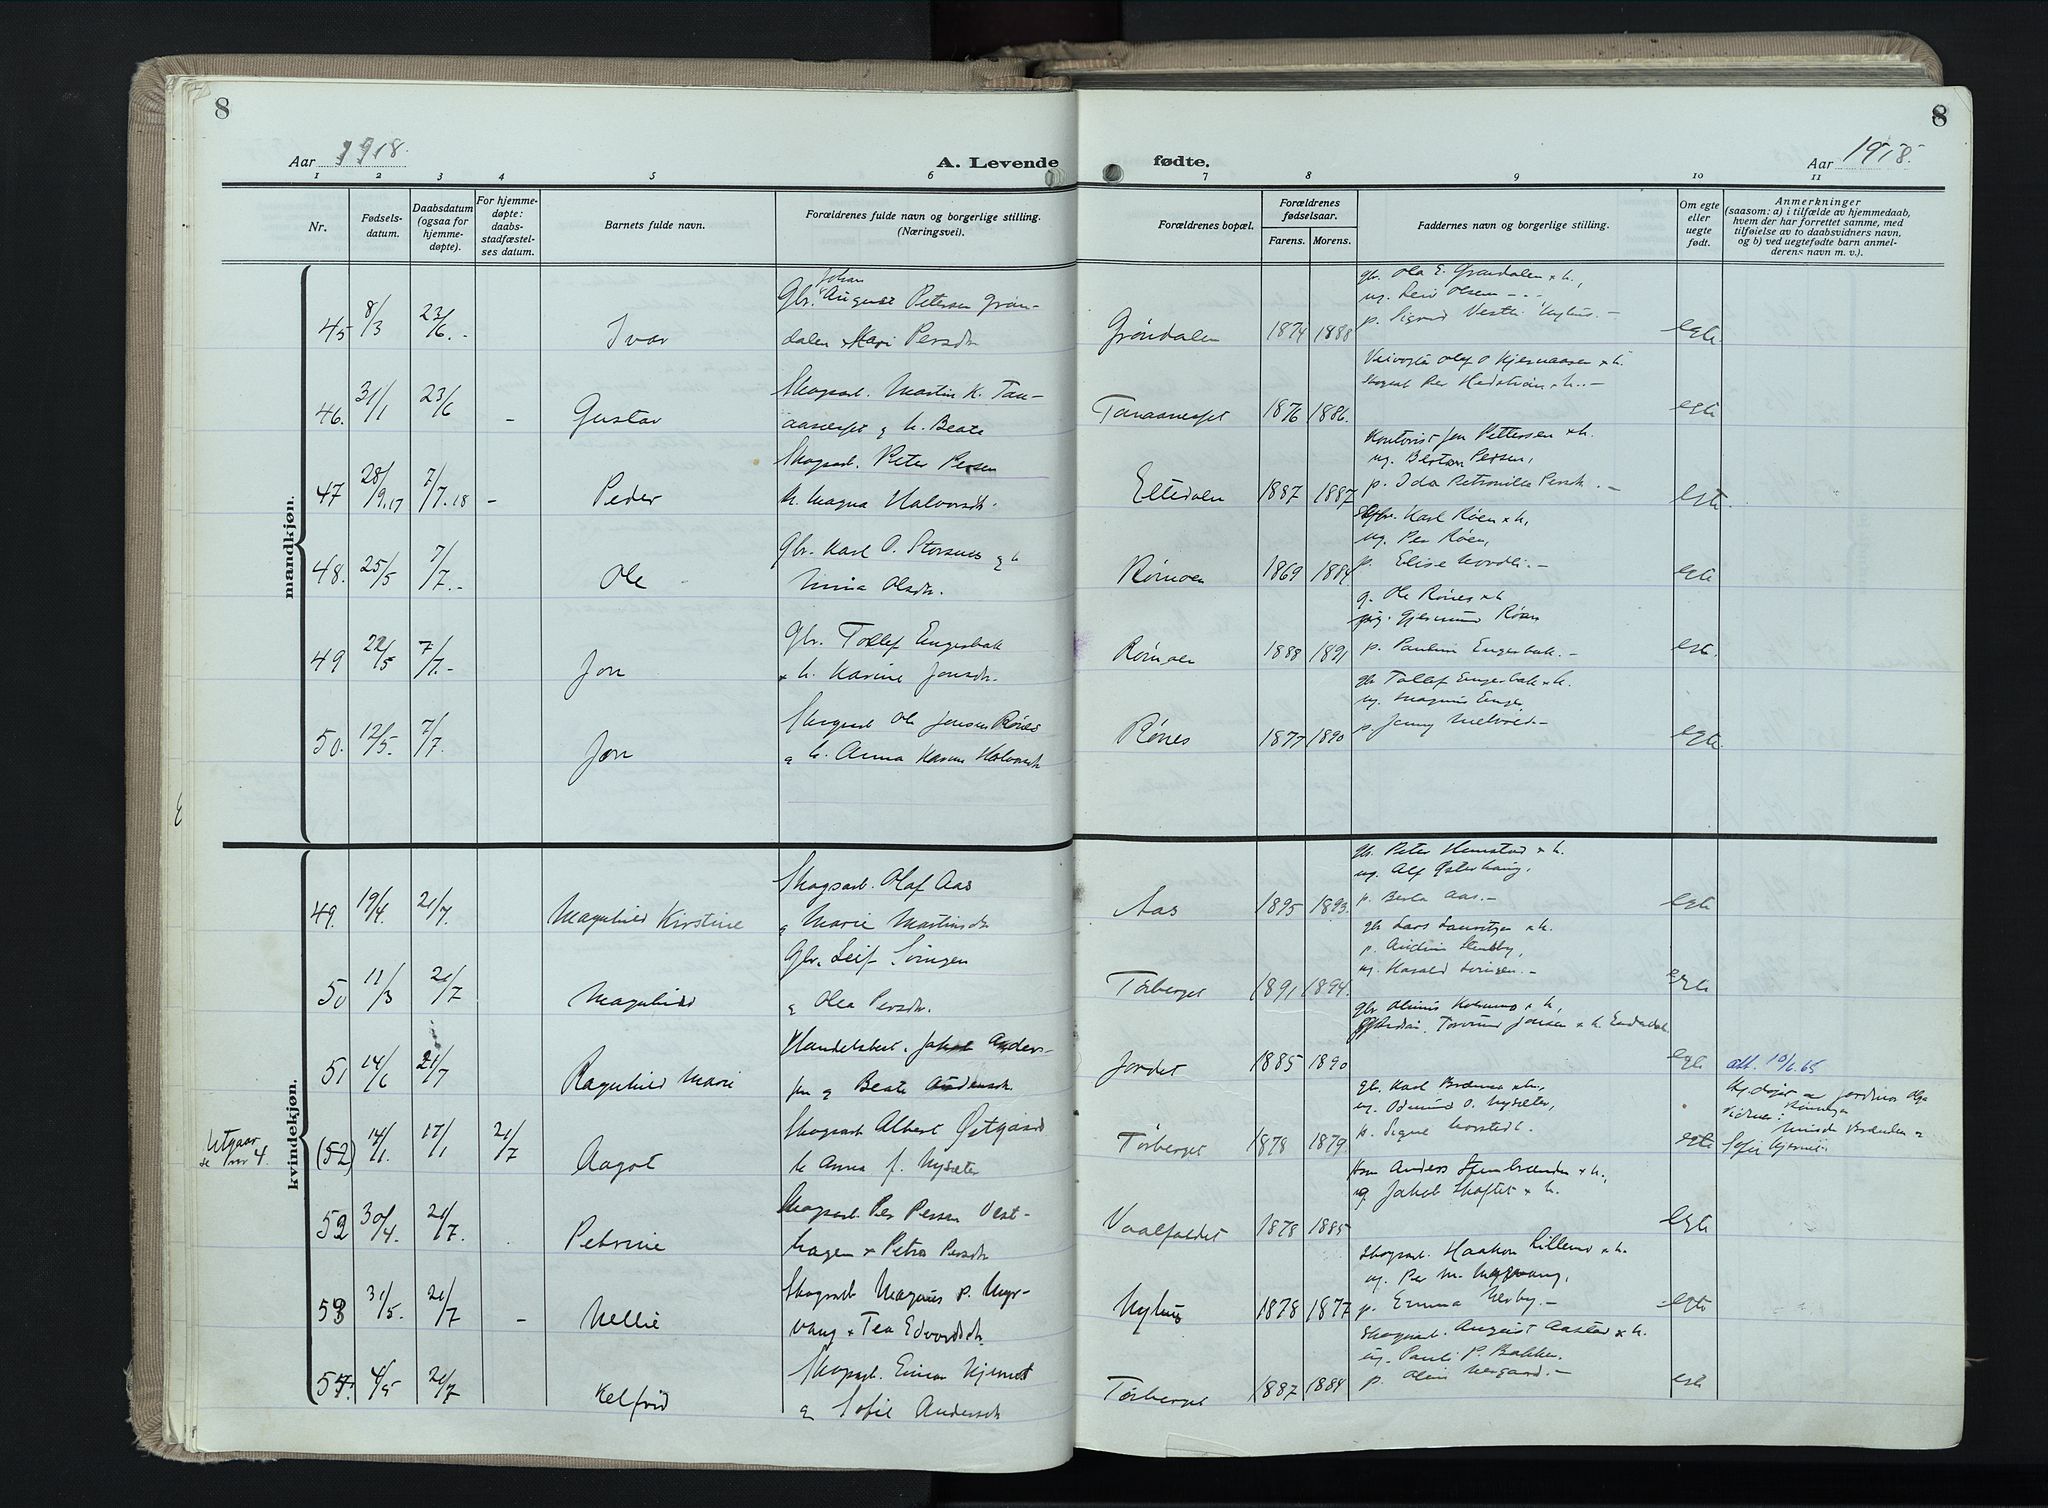 8
8
Aar 1918.
A. Levende
fødte.
Aar 1918.
1 2 3 4 5 6 7 8 9 10 11
Nr.
Fødsels-
datum.
Daabsdatum
(ogsaa for
hjemme-
døpte).
For hjemme-
døpte:
daabs-
stadfæstel-
ses datum.
Barnets fulde navn.
Forældrenes fulde navn og borgerlige stilling.
(Næringsvei).
Forældrenes bopæl.
Forældrenes
fødselsaar.
Farens. Morens.
Faddernes navn og borgerlige stilling.
Om egte
eller
uegte
født.
Anmerkninger
(saasom: a) i tilfælde av hjemmedaab,
hvem der har forrettet samme, med
tilføielse av to daabsvidners navn,
og b) ved uegtefødte barn anmel-
derens navn m. v.).
mandkjøn.
45 8/3 23/6.- Ivar
Johan
Gbr. August Petersen Grøn-
dalen x Kari Persdtr
Grøndalen 1874 1888
gbr. Ola E. Grøndalen x h.,
ug. Leiv Olsen - - -
p. Sigrid Vestli Nyhus. -
egte
46. 31/1 23/6 - Gustav
Skogsarb. Martin K. Tan-
aasneset og h. Beate
Tanaaneset 1876 1886.
Veivogter Olaf O Kjernaasen x h.
Skogsarb Per Hedström x h. -
egte
47 28/9.17 7/7.18 - Peder
Skogsarb. Peter Persen
h. Magna Halvorsdtr.
Eltdalen 1887 1887
Kontorist Jon Pettersen x h.
ug. Persen,
p. Ida Petronille Persdt. -
egte.
48. 25/5 7/7.- Ole
Gbr. Karl O. Storsnes og h
Mina Olsdtr.
Rømoen 1869 1884
Karl Røen x h,
ug. Per Røen,
p. Elise Nordli. -
egte
49 22/5 7/7.- Jon
Gbr. Tollef Engerbak
x h. Karine Jonsdtr.
Rømoen 1888 1891
g. Ole Rønes x h
Gjermund Røen
p. Pauline Engerbak. -
egte.
50. 12/5. 7/7. Jon
Skogsarb Ole Jonsen Rønes
og h. Anna Karine Halvorsdt
Rønes 1877 1890
gbr Tollef Engerbak x h.
ug. Magnus Enger,
p. Jenny Melvold. -
egte.
kvindekjøn.
49. 19/4. 21/7. Magnhild Kirstine
Skogsarb. Olaf Aas
og Marie Martinsdtr
Aas 1895 1893.
gbr. Peter Hemstad x h.
ug. Alf Østerhaug,
p. Berta Aas. -
egte
50 11/3 21/7 Magnhild
Gbr. Leif Søringen
og Olea Persdtr.
Tørberget 1891 1894.
gbr Lars Lauritzen x h.
p. Andrine Stenby,
ug. Harald Søringen. -
egte
51 14/6 21/7 Ragnhild Marie
Handelsbest. Jakob Anders-
sen og Beate Andersdt
Jordet 1885 1890
egte
att. 10/6.65
(52) 14/1. 17/1 21/7 Aagot
Utgaar
se nr 4.
Skogsarb Albert Østgaard
h Anna f. Nysæter
Tørberget 1878 1879.
gbr. Karl x h.,
ug. Odmund O. Nysæter,
p. Signe Norstedt.
egte
52 30/4. 21/7. Petrine
Skogsarb. Per Persen Vest-
hagen x Petra Persdtr
Vaalfaldet 1878 1885
Anders x h.,
g. Jakob Skaftet x h.
egte
53 31/5. 21/7 - Nellie
Skogsarb Magnus P. Myr-
vang x Tea Edvardsdtr
Nyhus 1878 1877
Skogsarb. Haakon Lillemo x h.
ug. Per M. Myrvang,
p. Emma Neby. -
egte
54. 4/5 21/7 Kelfrid
Skogsarb. Einar Kjernet
og Sofie Andersdt
Tørberget 1887 1884
Skogsarb. August Aastad x h.
ug. Pauli P. Bakken.
p. Olin Nergaard. -
egte